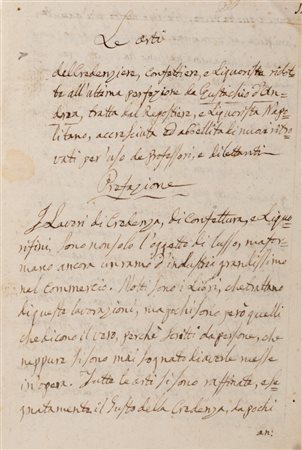 Le arti
del Credenziere, Confettiere, e Liquorista ridot-
te all'ultima perfezione da Eustachio d'An-
drea, tratte dal Repostiere, e Liquorista Nap-
olitano, accresciuta ed abbellita di nuovi ritro-
vati per l'uso de Professori, e dilettanti
Prefazione
I Lavori di Credenza, di Confettura, e Liquo-
rifizi, sono non solo l'oggetto di lusso, ma for-
mano ancora un ramo d'industria grandissimo
nel commercio. Molti sono i Libri, che trattano
di queste lavorazioni, ma pochi sono però quelli
che dicono il vero, perchè scritti da persone, che
neppure si sono mai sognato di averle messe
in opera. Tutte le arti si sono raffinate, e se-
gnatamente il Gusto della Credenza, da pochi
an: